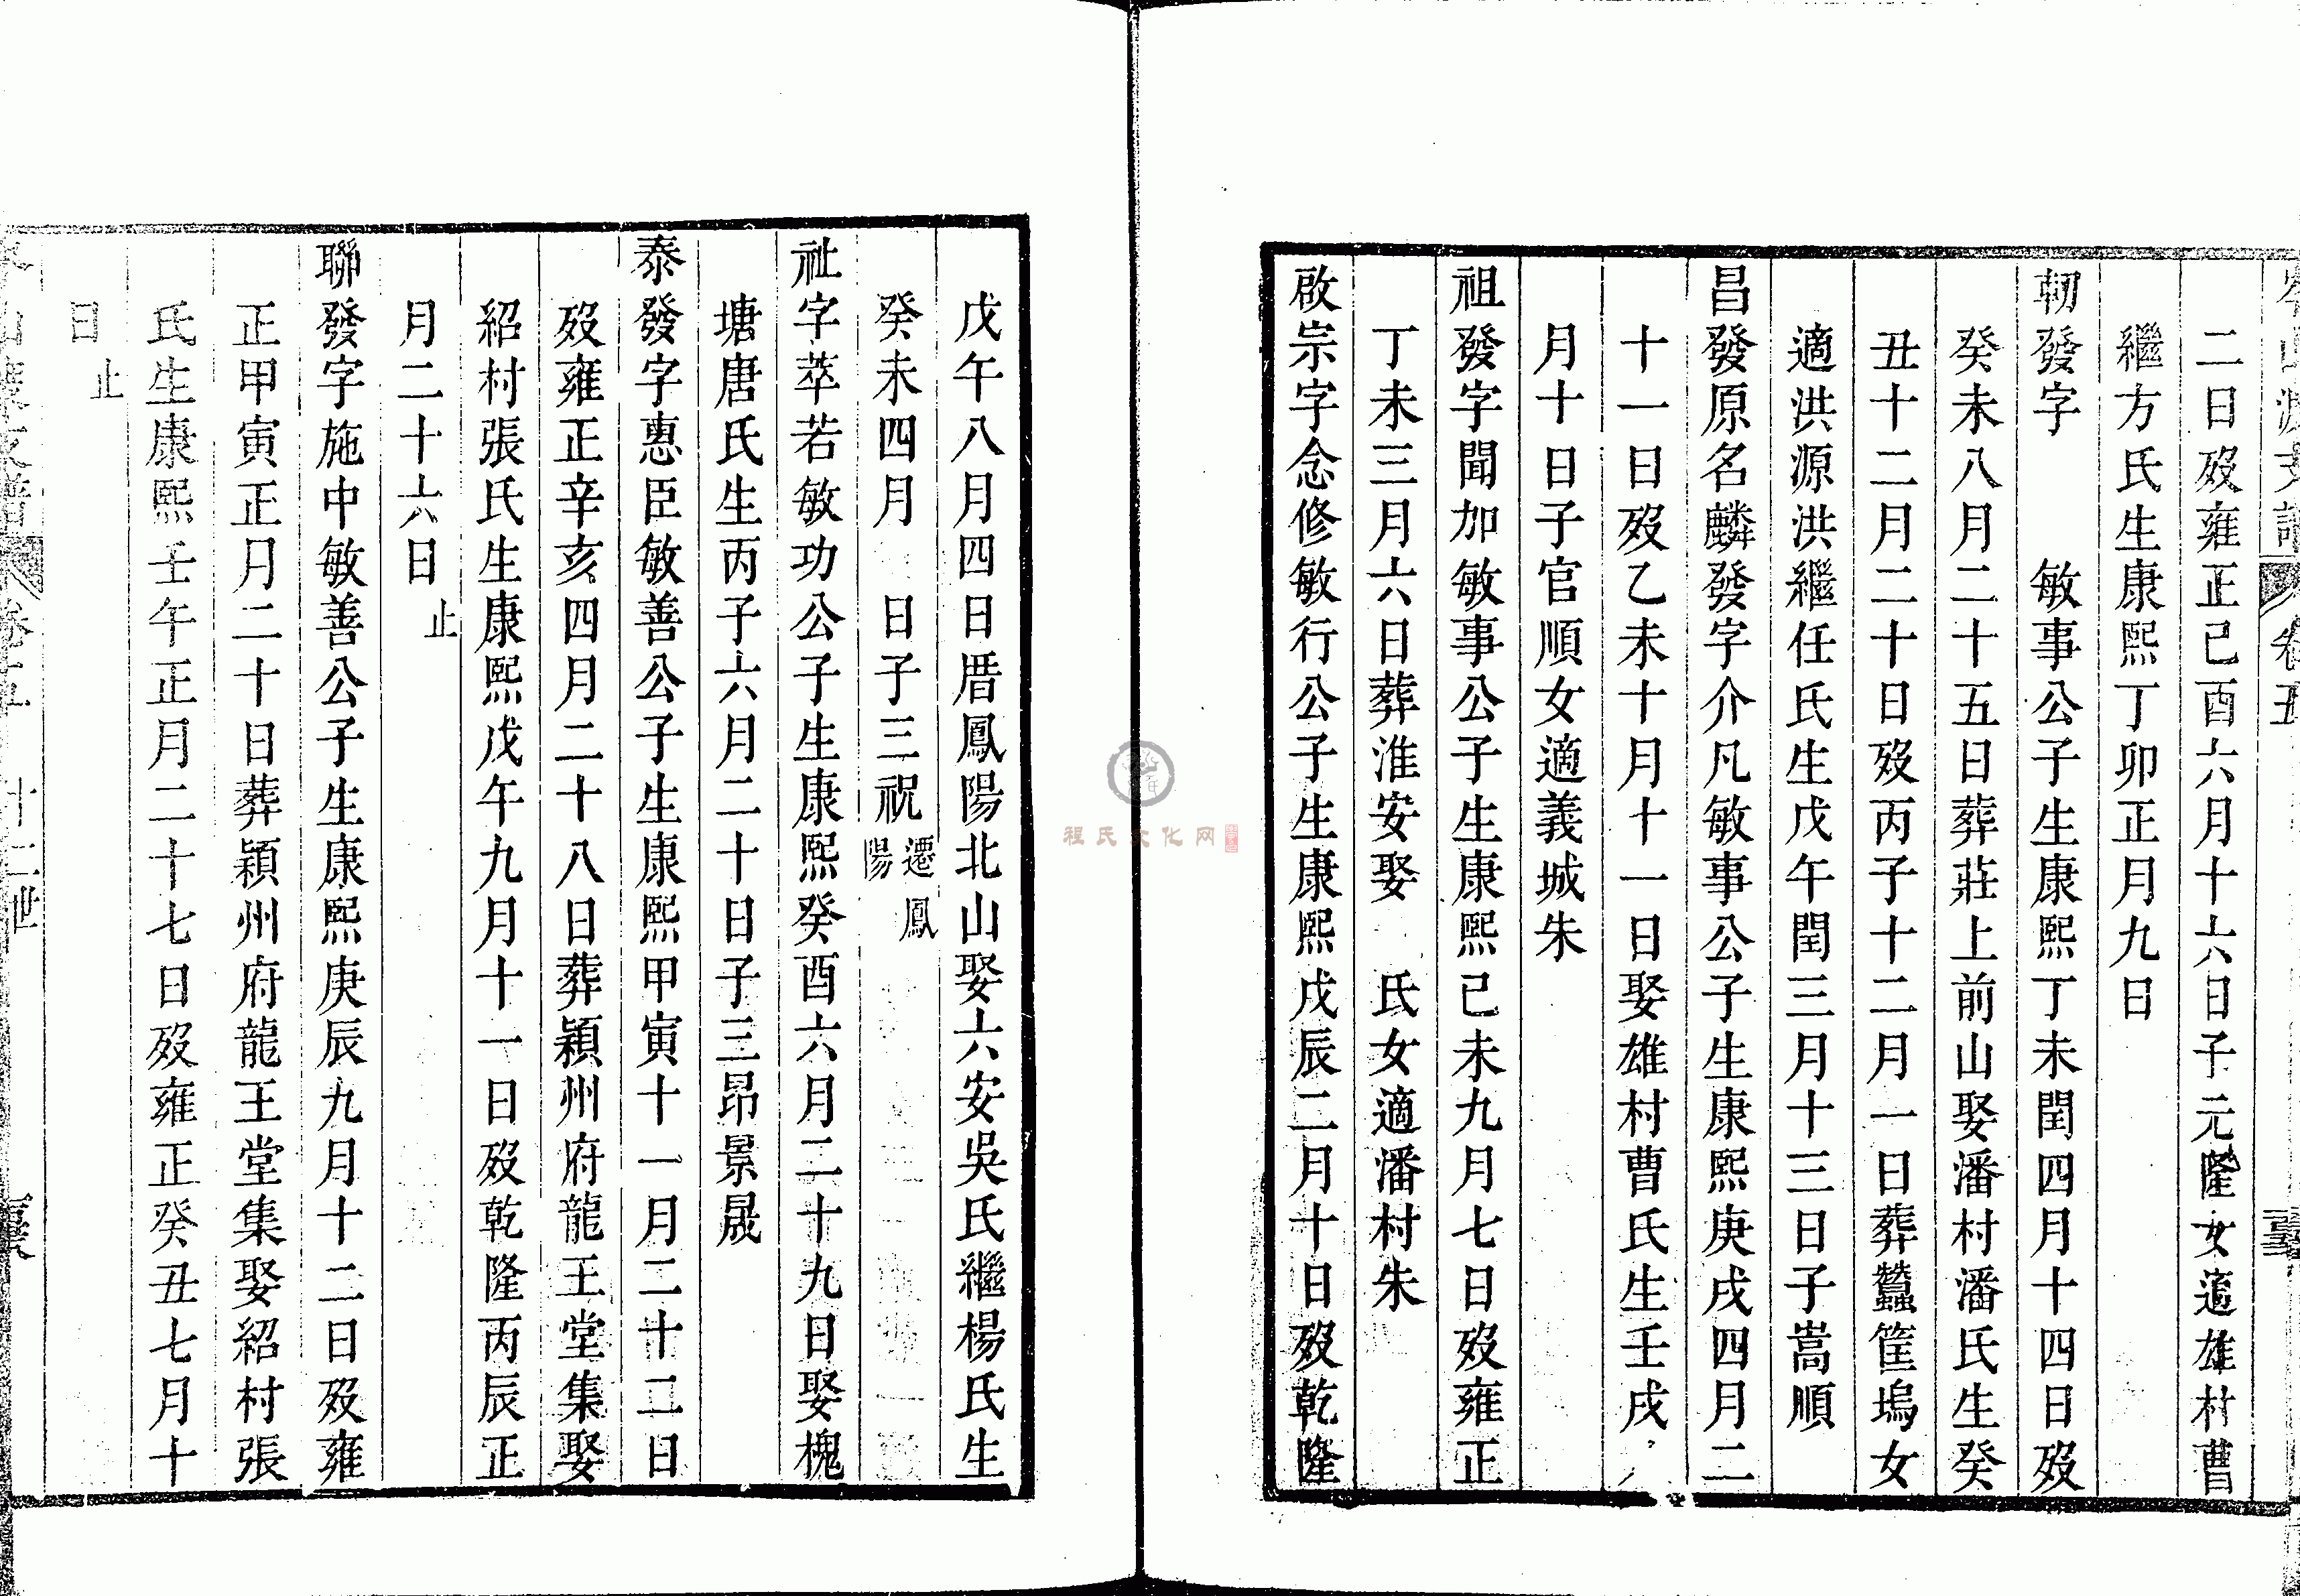 二日歿雍正己酉六月十六日子元隆女適雄村曹
繼方氏生康熙丁卯正月九日
軔發字 敏事公子生康熙丁未閏四月十四日歿
癸未八月二十五日葬莊上前山娶潘村潘氏生癸
丑十二月二十日歿丙子十二月一日葬蠶筐塢女
適洪源洪繼任氏生戊午閏三月十三日子嵩順
昌發原名麟發字介凡敏事公子生康熙庚戌四月二
十一日歿乙未十月十一日娶雄村曹氏生壬戌
月十日子官順女適義城朱
祖發字聞加敏事公子生康熙己未九月七日歿雍正
丁未三月六日葬淮安娶 氏女適潘村朱
啟宗字念修敏行公子生康熙戊辰二月十日歿乾隆
戊午八月四日厝鳳陽北山娶六安吳氏繼楊氏生
癸未四月 日子三祝遷鳳陽
祉字萃若敏功公子生康熙癸酉六月二十九日娶槐
塘唐氏生丙子六月二十日子三昂景晟
泰發字惠臣敏善公子生康熙甲寅十一月二十二日
歿雍正辛亥四月二十八日葬穎州府龍王堂集娶
紹村張氏生康熙戊午九月十一日歿乾隆丙辰正
月二十六日止
聯發字施中敏善公子生康熙庚辰九月十二日歿雍
正甲寅正月二十日葬穎州府龍王堂集娶紹村張
氏生康熙壬午正月二十七日歿雍正癸丑七月十
日止
卷五 十二世
程氏文化网